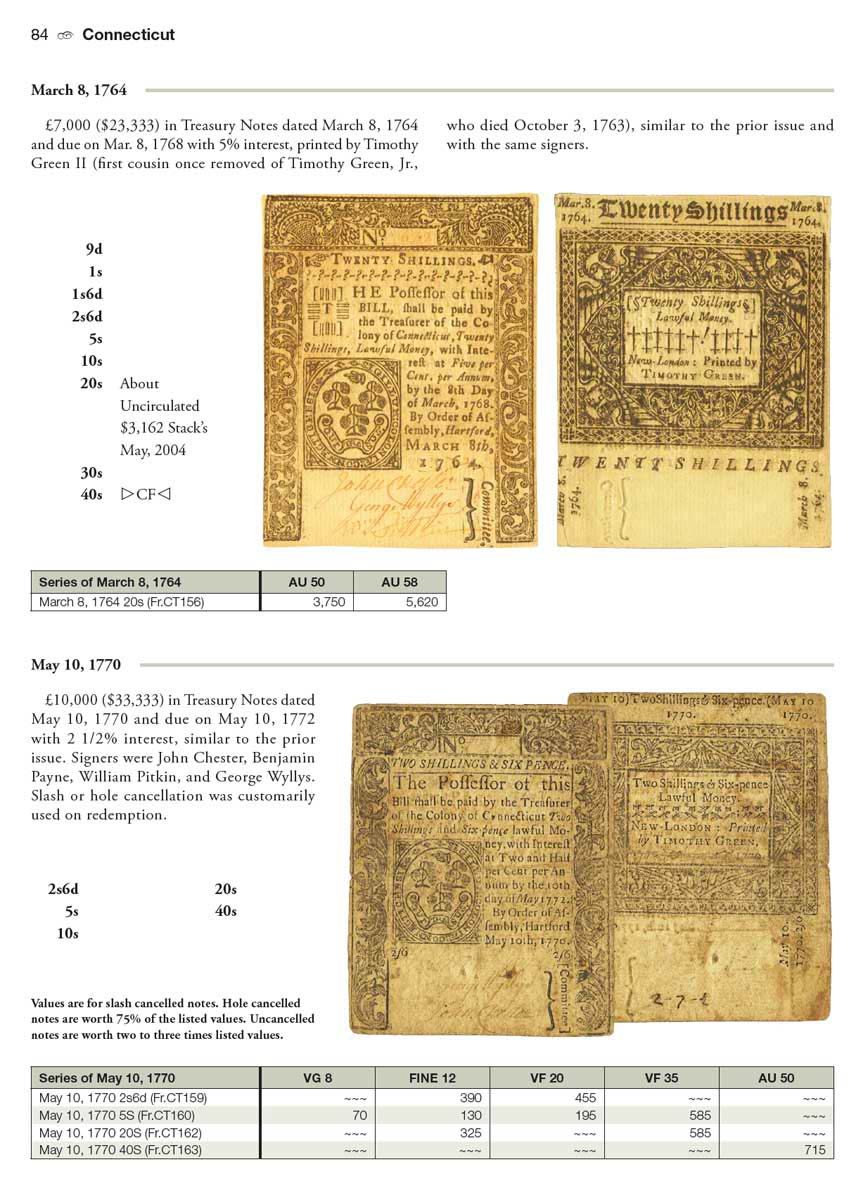 84 Connecticut
March 8, 1764
£7,000 ($23,333) in Treasury Notes dated March 8, 1764
and due on Mar. 8, 1768 with 5% interest, printed by Timothy
Green II (first cousin once removed of Timothy Green, Jr.,
who died October 3, 1763), similar to the prior issue and
with the same signers.
9d
1s
1s6d
2s6d
5s
10s
20s About
Uncirculated
$3,162 Stack's
May, 2004
30s
40s ▷CF◁
No
TWENTY SHILLINGS.
THE Poſſeſſor of this
BILL, ſhall be paid by
the Treaſurer of the Co
lony of Connecticut, Twenty
Shillings, Lawful Money, with Inte-
reſt at Five per
Cent. per Annum,
by the 8th Day
of March, 1768.
By Order of Aſ-
ſembly, Hartford,
MARCH 8th,
1764.
Committee.
Mar. 8. Twenty Shillings Mar. 8.
1764. 1764.
Twenty Shillings
Lawful Money.
New-London: Printed by
TIMOTHY GREEN.
TWENTY SHILLINGS
March 8, 1764.
March 8, 1764.
Series of March 8, 1764 AU 50 AU 58
March 8, 1764 20s (Fr.CT156) 3,750 5,620
May 10, 1770
£10,000 ($33,333) in Treasury Notes dated
May 10, 1770 and due on May 10, 1772
with 2 1/2% interest, similar to the prior
issue. Signers were John Chester, Benjamin
Payne, William Pitkin, and George Wyllys.
Slash or hole cancellation was customarily
used on redemption.
2s6d 20s
5s 40s
10s
No
TWO SHILLINGS & SIX PENCE.
The Poſſeſſor of this
Bill ſhall be paid by the Treaſurer
of the Colony of Connecticut Two
Shillings and Six-pence lawful Mo-
ney, with Intereſt
at Two and Half
per Cent per An-
num by the 10th
day of May 1772.
By Order of Aſ-
ſembly, Hartford
May 10th, 1770.
2/6 2/6
Committee
MAY 10) Two Shillings & Six-pence. (MAY 10
1770. 1770.
Two Shillings & Six-pence
Lawful Money.
NEW-LONDON: Printed
by TIMOTHY GREEN.
May 10.
1770. 2/6
2-7-
Values are for slash cancelled notes. Hole cancelled
notes are worth 75% of the listed values. Uncancelled
notes are worth two to three times listed values.
Series of May 10, 1770 VG 8 FINE 12 VF 20 VF 35 AU 50
May 10, 1770 2s6d (Fr.CT159) ~~~ 390 455 ~~~ ~~~
May 10, 1770 5S (Fr.CT160) 70 130 195 585 ~~~
May 10, 1770 20S (Fr.CT162) ~~~ 325 ~~~ 585 ~~~
May 10, 1770 40S (Fr.CT163) ~~~ ~~~ ~~~ ~~~ 715